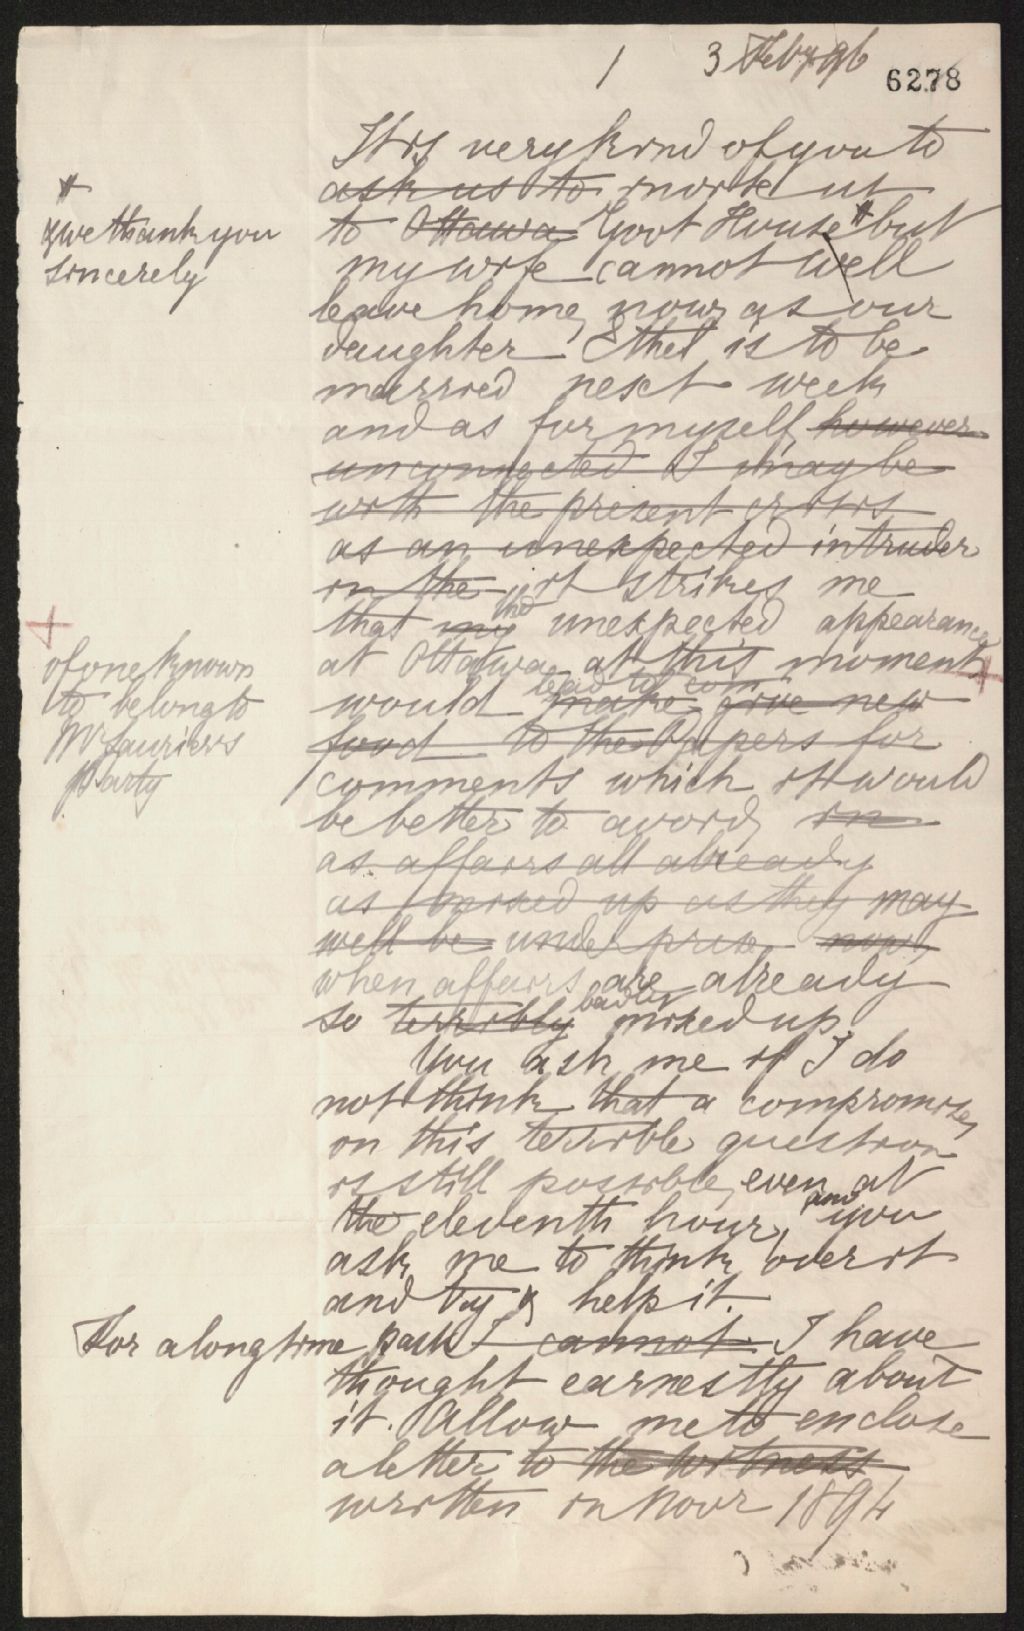 1
3 Feby 96
6278
It is very kind of you to
ask us to invite us
#
to Ottawa Govt House # but
& we thank you
sincerely
my wife cannot well
leave home now, as our
daughter Ethel is to be
married next week
and as for myself, however
unconnected I may be
with the present crisis
as an unexpected intruder
in the - it strikes me
that my the unexpected appearance
at Ottawa at this moment
of one known
to belong to
Mr Laurier's
party
would make give new
lead to
food to the Papers for
comments which it would
be better to avoid, in
as affairs all already
as mixed up as they may
well be under now,
when affairs are already
so terribly badly mixed up.
You ask me if I do
not think that a compromise,
on this terrible question
is still possible, even at
the eleventh hour, and you
ask me to think over it
and try & help it.
For a long time past I cannot. I have
thought earnestly about
it. Allow me to enclose
a letter to the Witness
written in Novr 1894